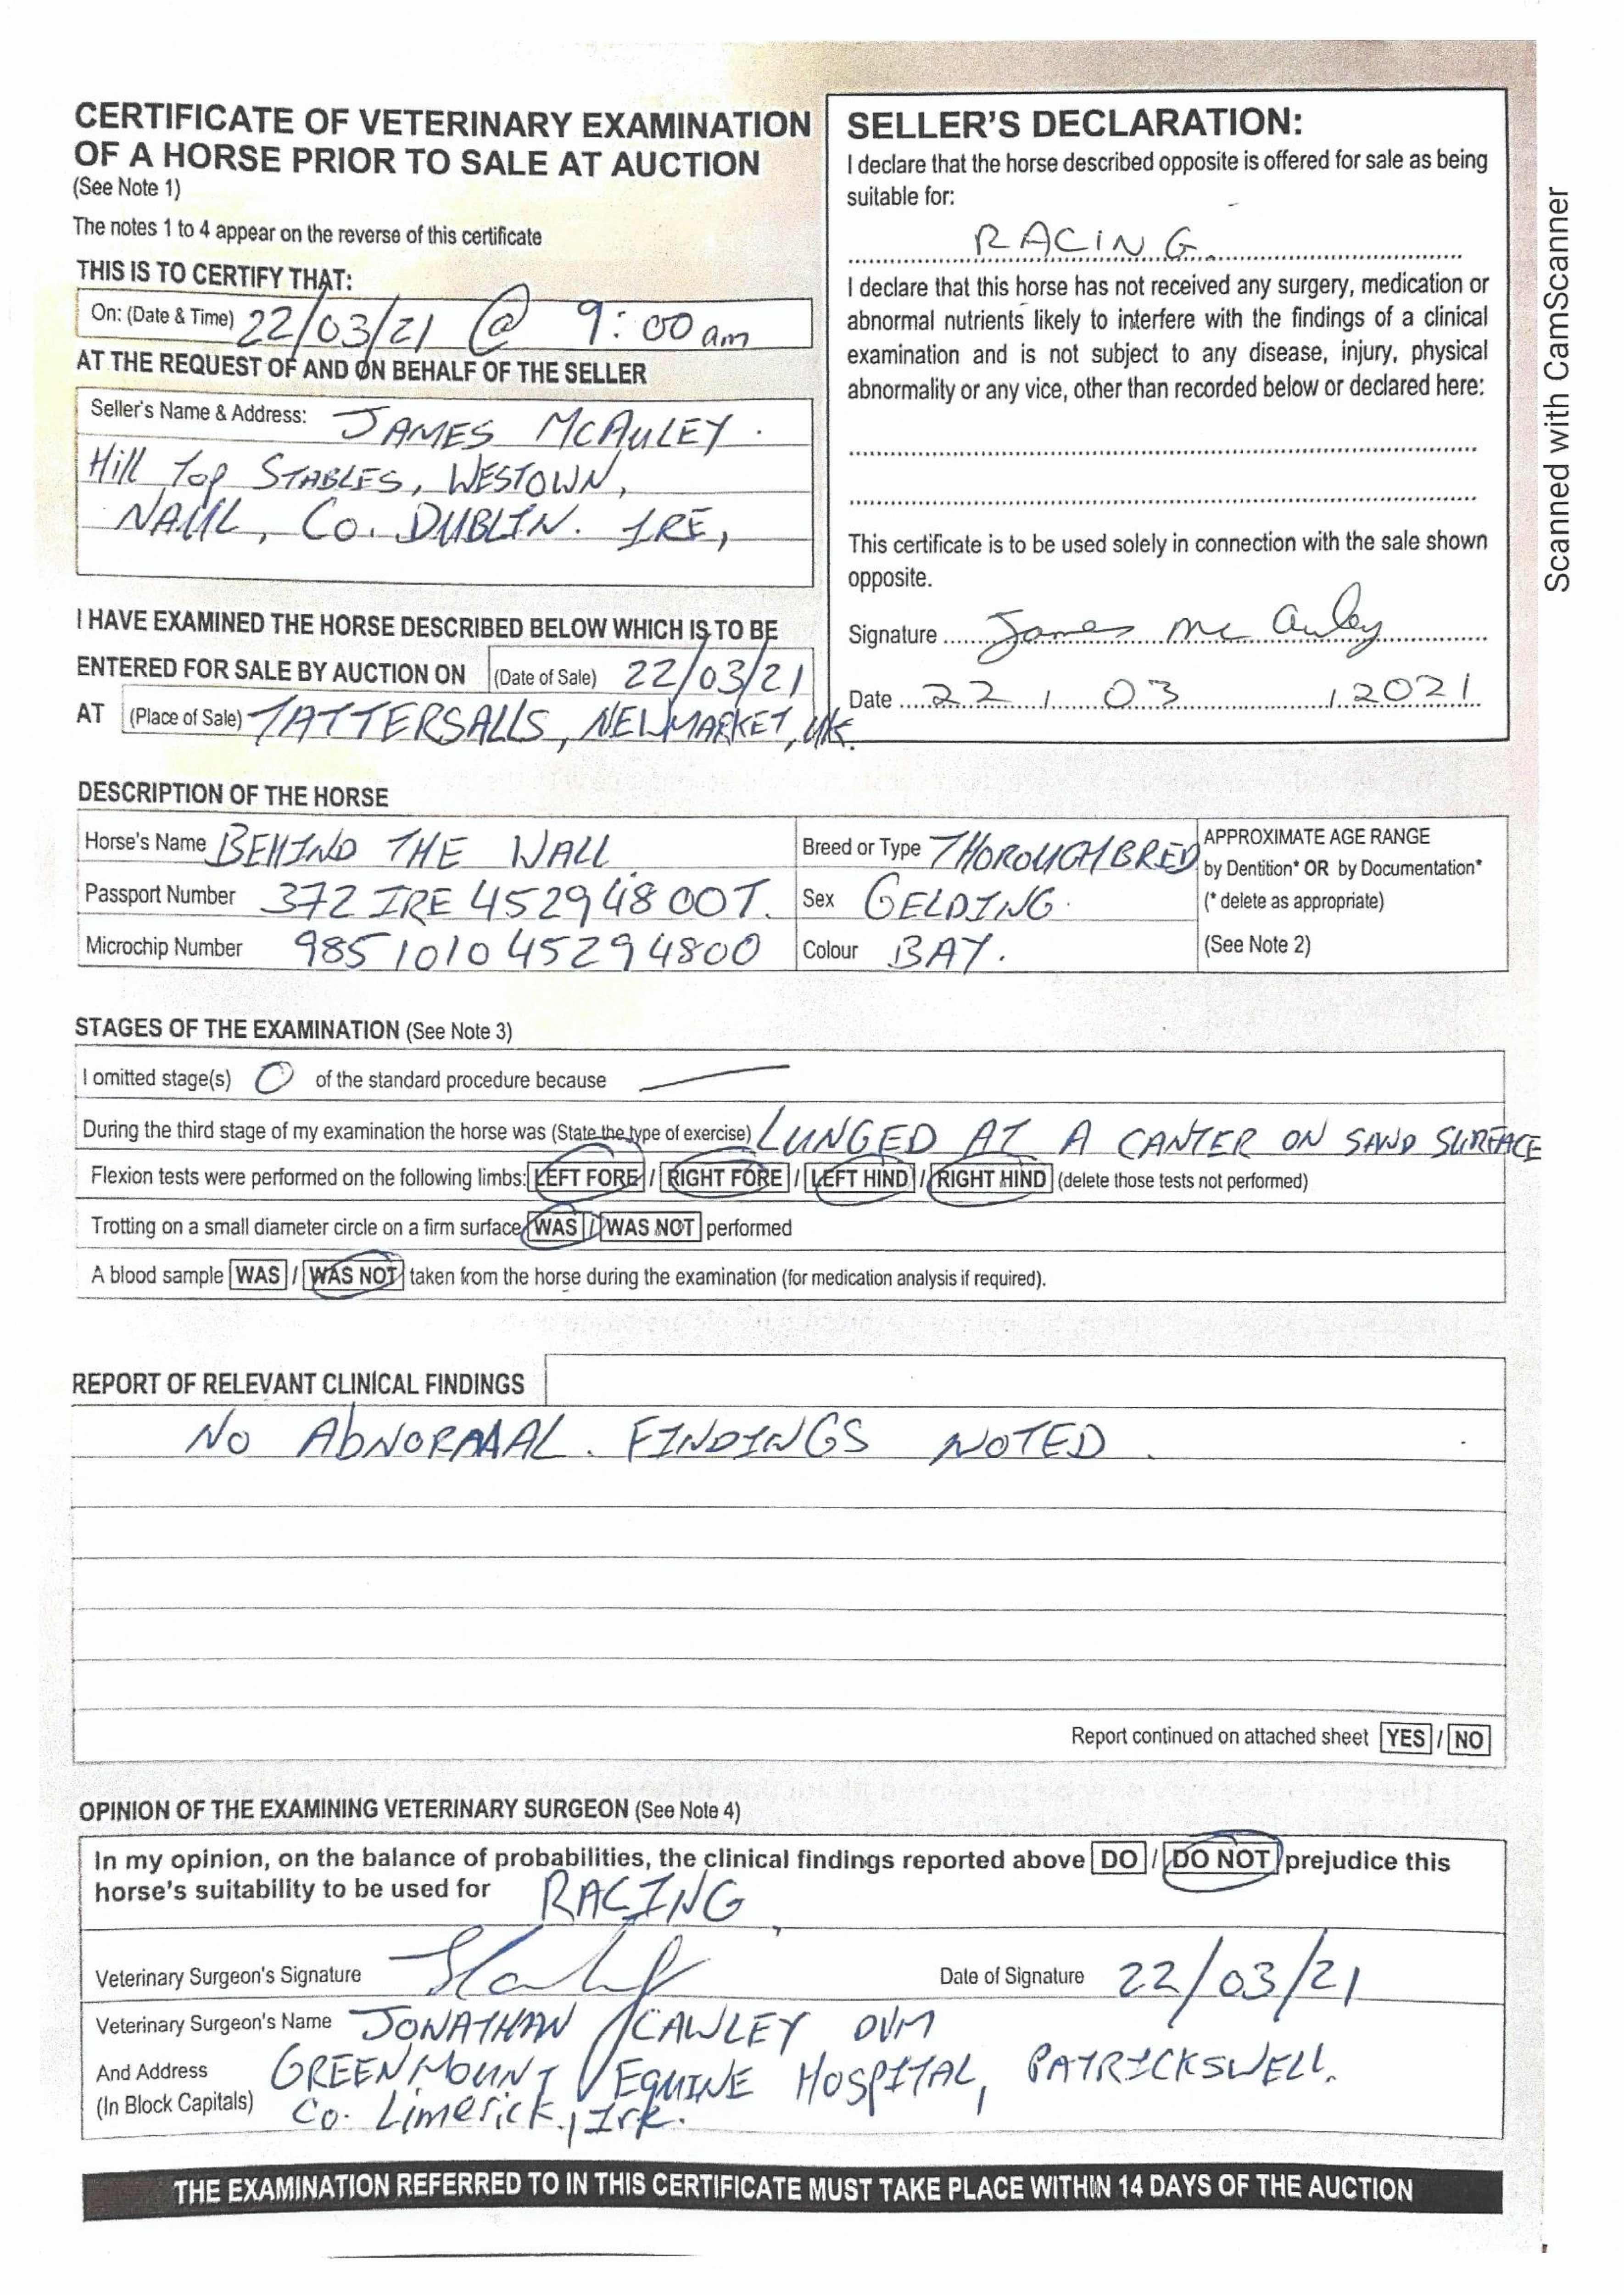 CERTIFICATE OF VETERINARY EXAMINATION
OF A HORSE PRIOR TO SALE AT AUCTION
(See Note 1)
The notes 1 to 4 appear on the reverse of this certificate
THIS IS TO CERTIFY THAT:
On: (Date & Time) 22/03/21 @ 9:00 am
AT THE REQUEST OF AND ON BEHALF OF THE SELLER
Seller's Name & Address: JAMES MCAULEY.
Hill Top STABLES, WESTOWN,
NAUL, Co. DUBLIN. IRE,
I HAVE EXAMINED THE HORSE DESCRIBED BELOW WHICH IS TO BE
ENTERED FOR SALE BY AUCTION ON (Date of Sale) 22/03/21
AT (Place of Sale) TATTERSALLS, NEWMARKET, UK.
SELLER'S DECLARATION:
I declare that the horse described opposite is offered for sale as being
suitable for:
RACING
I declare that this horse has not received any surgery, medication or
abnormal nutrients likely to interfere with the findings of a clinical
examination and is not subject to any disease, injury, physical
abnormality or any vice, other than recorded below or declared here:
This certificate is to be used solely in connection with the sale shown
opposite.
Signature James Mc Auley
Date 22 / 03 / 2021
Scanned with CamScanner
DESCRIPTION OF THE HORSE
Horse's Name BEHIND THE WALL
Passport Number 372 IRE 45294800T.
Microchip Number 985101045294800
Breed or Type THOROUGHBRED
Sex GELDING.
Colour BAY.
APPROXIMATE AGE RANGE
by Dentition* OR by Documentation*
(* delete as appropriate)
(See Note 2)
STAGES OF THE EXAMINATION (See Note 3)
I omitted stage(s) 0 of the standard procedure because
During the third stage of my examination the horse was (State the type of exercise) LUNGED AT A CANTER ON SAND SURFACE
Flexion tests were performed on the following limbs: LEFT FORE / RIGHT FORE / LEFT HIND / RIGHT HIND (delete those tests not performed)
Trotting on a small diameter circle on a firm surface WAS / WAS NOT performed
A blood sample WAS / WAS NOT taken from the horse during the examination (for medication analysis if required).
REPORT OF RELEVANT CLINICAL FINDINGS
NO AbNORMAL. FINDINGS NOTED.
Report continued on attached sheet YES / NO
OPINION OF THE EXAMINING VETERINARY SURGEON (See Note 4)
In my opinion, on the balance of probabilities, the clinical findings reported above DO / DO NOT prejudice this
horse's suitability to be used for RACING
Veterinary Surgeon's Signature
Date of Signature 22/03/21
Veterinary Surgeon's Name JONATHAN CAWLEY DVM
And Address GREENMOUNT EQUINE HOSPITAL, PATRICKSWELL.
(In Block Capitals) Co. Limerick., Ire.
THE EXAMINATION REFERRED TO IN THIS CERTIFICATE MUST TAKE PLACE WITHIN 14 DAYS OF THE AUCTION